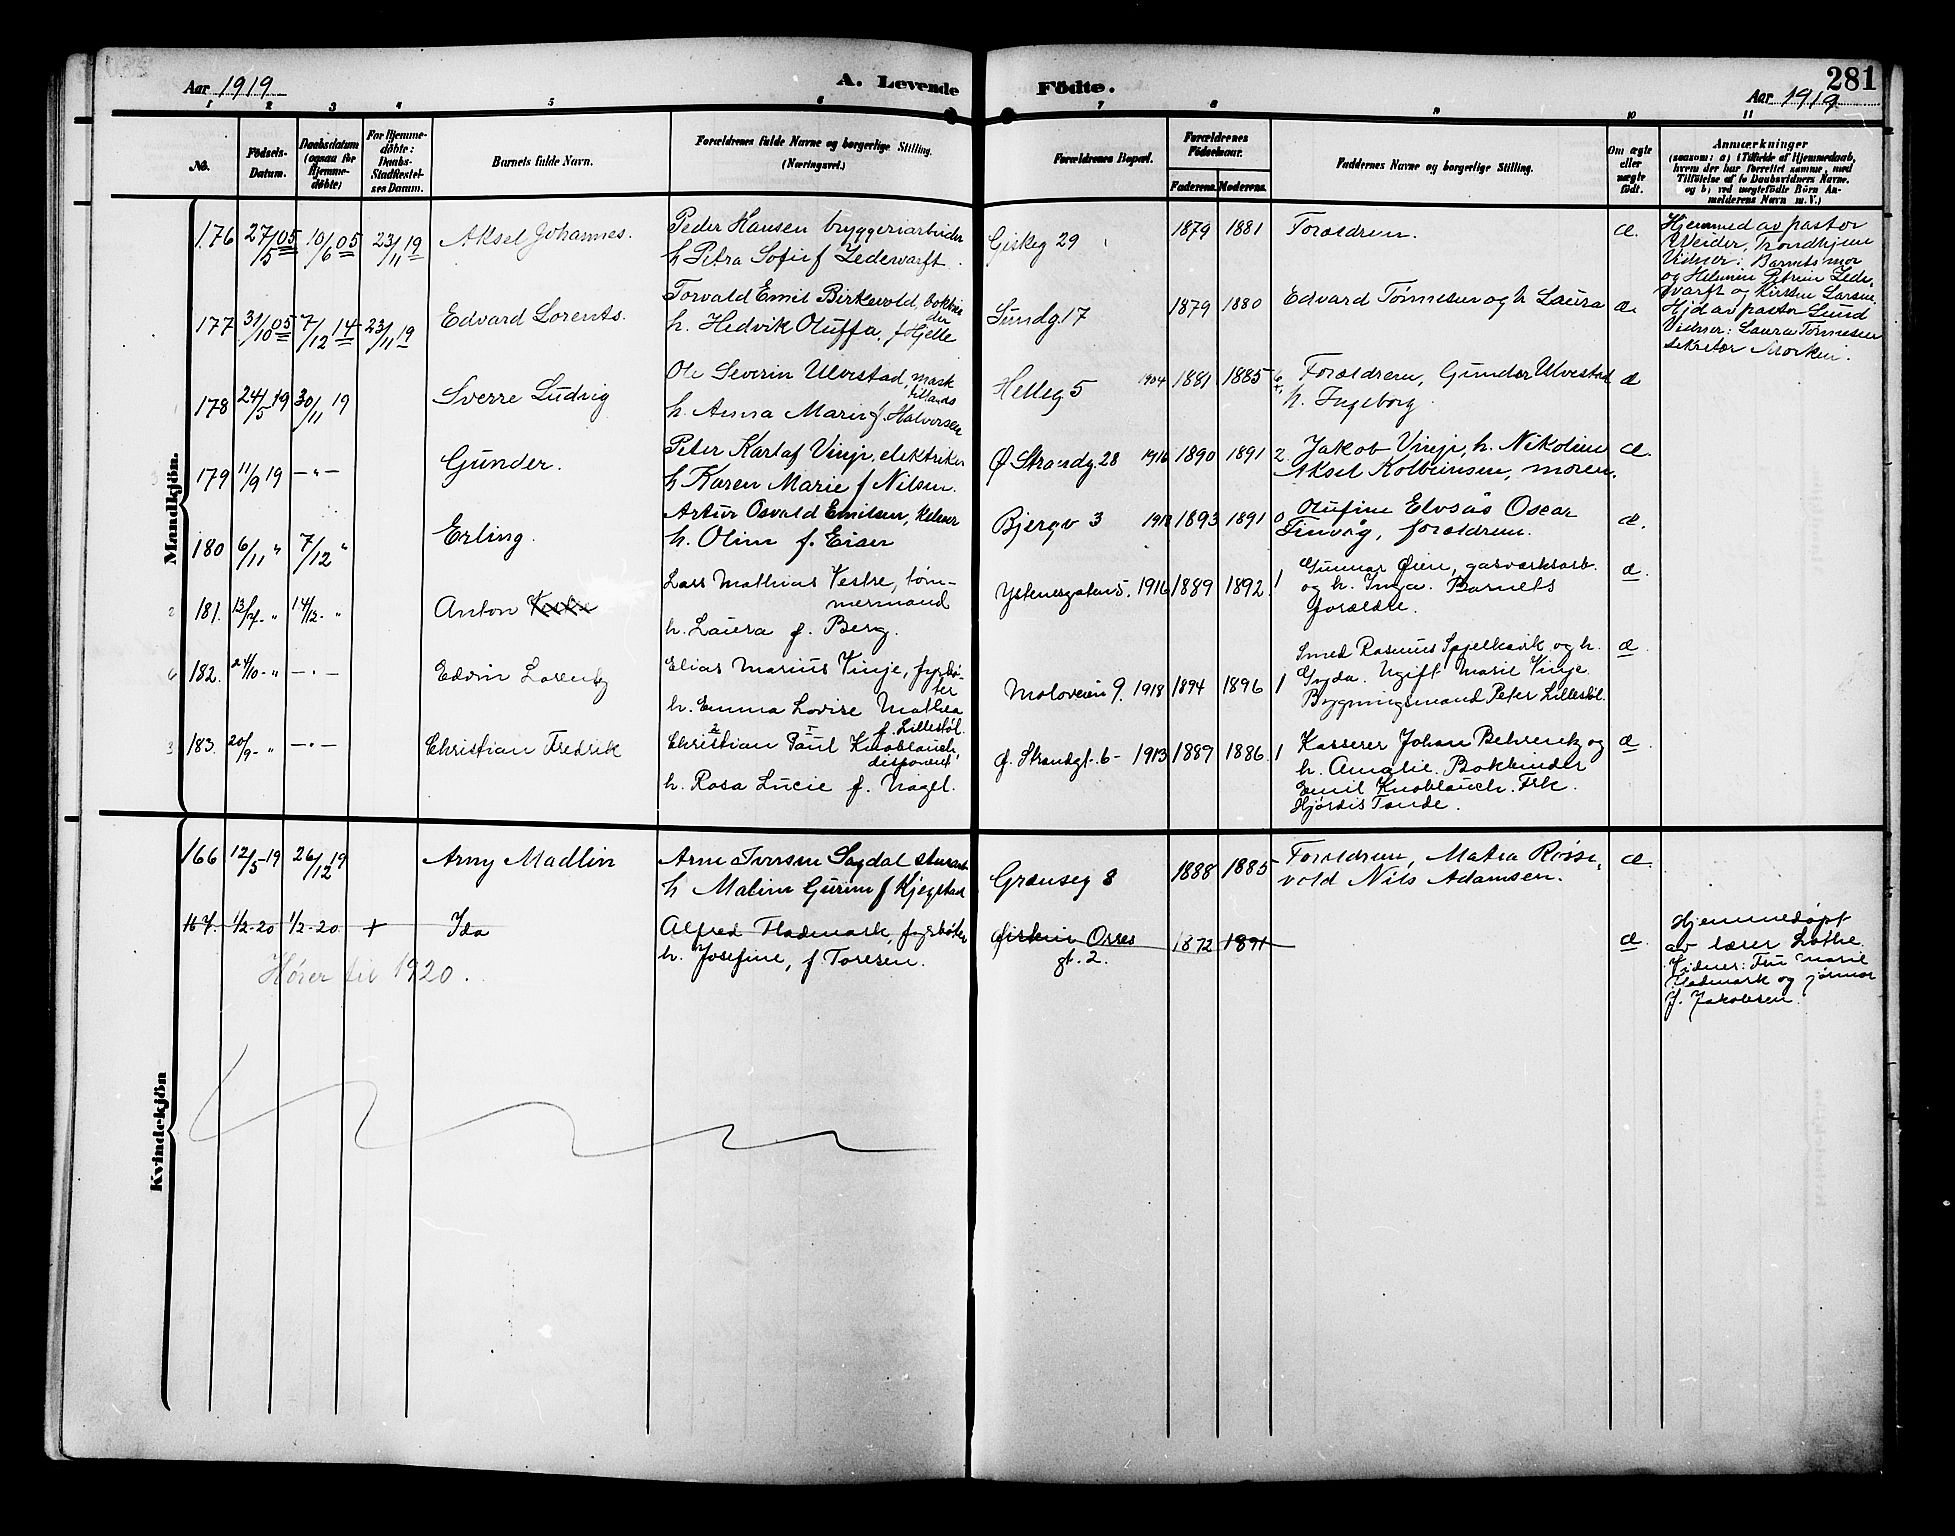 281
Aar 1919 A. Levende Födte. Aar 1919
1 2 3 4 5 6 7 8 9 10 11
No. Födsels-Datum. Daabsdatum (ogsaa for Hjemme-döbte) For Hjemme-döbte: Daabs-Stadfæstel-ses Datum. Barnets fulde Navn. Forældrenes fulde Navne og borgerlige Stilling. (Næringsvei.) Forældrenes Bopæl. Forældrenes Födselsaar. Faderens. Moderens. Faddernes Navne og borgerlige Stilling. Om ægte eller uægte födt. Anmærkninger (saasom: a) i Tilfælde af Hjemmedaab, hvem der har forrettet samme, med Tilföielse af to Daabsvidners Navne. og b) ved uægtefödte Börn An-melderens Navn m. V.)
Mandkjön.
176 27/5 05 10/6 05 23/11 19 Aksel Johannes. Peder Hansen bryggeriarbeider
h Petra Sofie f Zederwarft. Giskeg 29 1879 1881 Forældrene. æ.
Hjemmed av pastor
Weider, Trondhjem
Vidner: Barnets mor
og Heleni Petrine Zeder
warft og Kirsten Larsen.
177 31/10 05 7/12 14 23/11 19 Edvard Lorents. Torvald Emil Birkevold, bokbin
der
h. Hedvik Oluffa, f Hjelle Sundg 17 1879 1880 Edvard Tønnesen og h Laura æ.
Hjd av pastor Lund
Vidner: Laura Tønnesen
sekretær Morken.
178 24/5 19 30/11 19 Sverre Ludvig Ole Severin Ulvestad, mask
h. Anna Marie f. Halvorsen Helleg 5 1904 1881 1885 6 Forældrene, Gunder Ulvestad
h. Ingeborg. æ
179 11/9 19 -"- Gunder. Peter Karlaf Vinje, elektriker
h Karen Marie f Nilsen. Ø Strandg. 28 1916 1890 1891 2 Jakob Vinje, h. Nikoline
Aksel Kolbeinsen, moren. æ.
180 6/11 " 7/12 " Erling. Artur Osvald Emilsen, kelner
h. Oline f. Eiser Bjergv 3 1918 1893 1891 0 Olufine Elvsås Oscar
Finvåg, forældrene. æ.
181. 13/7 - " 14/12 - " Anton Lars Mathias Vestre, tøm-
mermand
h. Laura f. Berg. Ystenesgaten 5. 1916 1889 1892 1 Gunnar Øien, gasverksarb.
og h. Inga. Barnets
forældre. æ.
182. 24/10 - " - " - Edvin Lorentz Elias Marius Vinje, fyrbø-
ter
h. Emma Lovise Mathea
f. Lillebøl. Moloveien 9. 1918 1894 1896 1 Smed Rasmus Spjelkavik og h.
Gyda. Ugift Marie Vinje
Bygningsmand Peter Lillebøl. æ.
183. 20/9 - " - " - Christian Fredrik Christian Paul Knoblauch,
disponent,
h. Rosa Lucie f. Nagel. Ø. Strandgt. 6 - 1913 1887 1886 1 Kasserer Johan Behrentz og
h. Amalie. Bokbinder
Emil Knoblauch. Frk.
Hjørdis Tande. æ.
Kvindekjön
166 12/5 -19 26/12 19 Arny Madlin Arne Iversen Sagdal
h Malene Gurine f Kjegstad Grænseg 8 1888 1885 Forældrene, Matea Røsse
vold Nils Adamsen. æ.
167. 1/2 -20 1/2 -20 + Ida Alfred Fladmark, fyrbøter
h. Josefine, f. Toresen. Orres
gt. 2. 1872 1891 æ.
Hjemmedøpt
av lærer Lothe.
Vidner: Fru Marie
Fladmark og jomor
f. Jakobsen.
Hører til 1920.